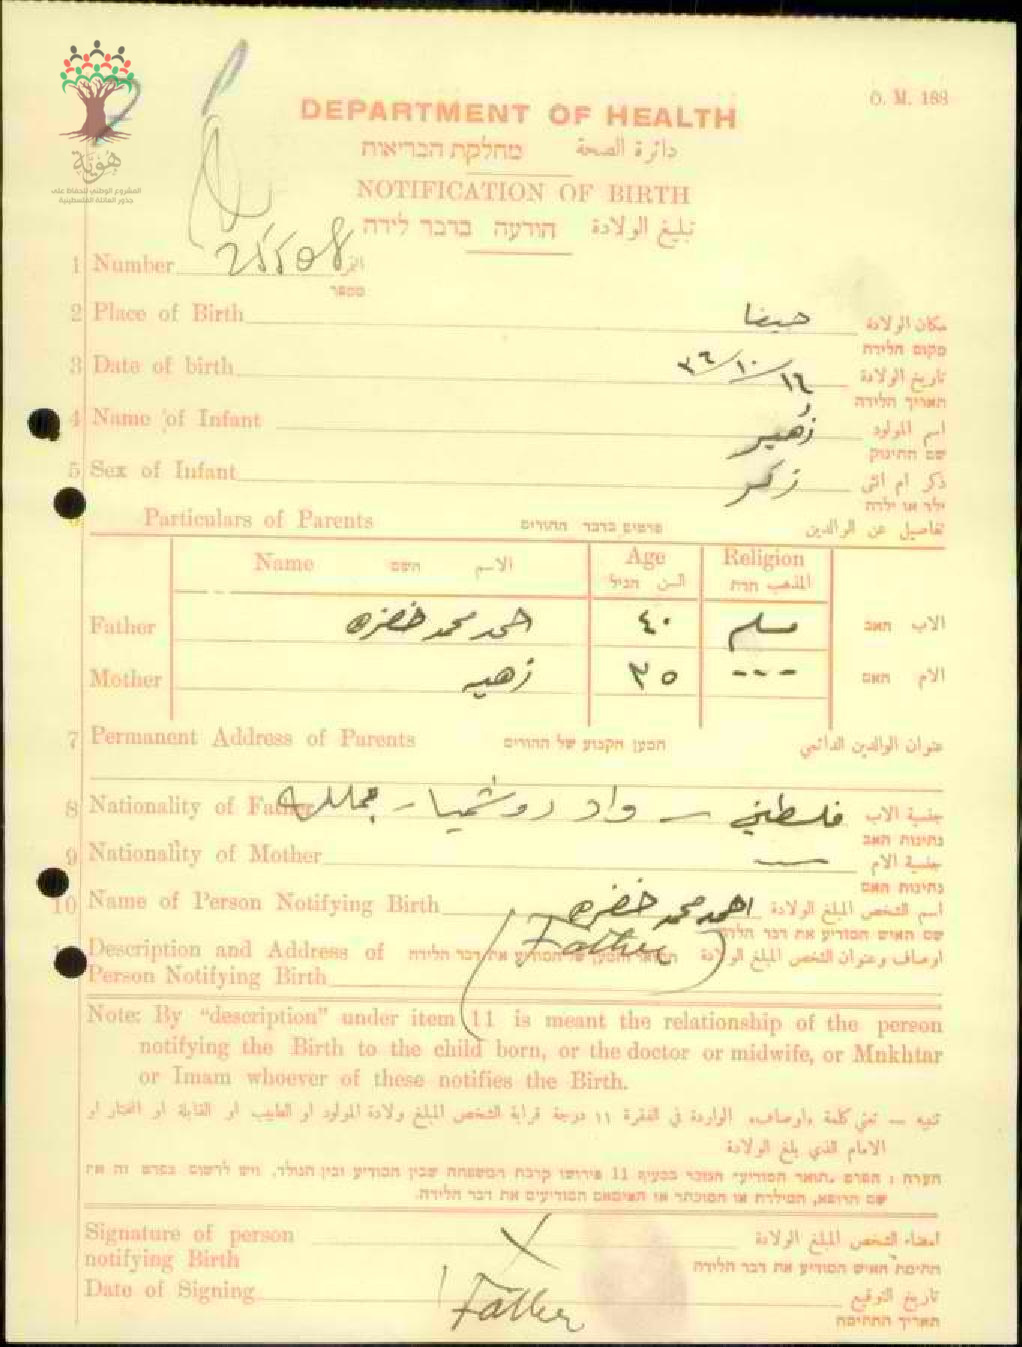 O. M. 188
هُويّة
المشروع الوطني للحفاظ على
جذور العائلة الفلسطينية
DEPARTMENT OF HEALTH
מחלקת הבריאות دائرة الصحة
NOTIFICATION OF BIRTH
הודעה בדבר לידה تبليغ الولادة
1 Number
מספר
2 Place of Birth حيفا مكان الولادة
מקום הלידה
3 Date of birth ١٦/١٠/٣٦ تاريخ الولادة
תאריך הלידה
4 Name of Infant زهير اسم المولود
שם התינוק
5 Sex of Infant ذكر ذكر ام انثى
ילד או ילדה
6 Particulars of Parents פרטים בדבר ההורים تفاصيل عن الوالدين
Name השם الاسم Age السن הגיל Religion المذهب הדת
Father احمد محمد خضره ٤٠ مسلم الاب האב
Mother زهيه ٣٥ --- الام האם
7 Permanent Address of Parents המען הקבוע של ההורים عنوان الوالدين الدائمي
8 Nationality of Father فلسطيني – واد روشميا – جنسية الاب
נתינות האב
9 Nationality of Mother — جنسية الام
נתינות האם
10 Name of Person Notifying Birth احمد محمد خضره اسم الشخص المبلغ الولادة
שם האיש המודיע את דבר הלידה
Description and Address of (Father) תואר ומען של המודיע את דבר הלידה اوصاف وعنوان الشخص المبلغ الولادة
Person Notifying Birth
Note: By "description" under item 11 is meant the relationship of the person
notifying the Birth to the child born, or the doctor or midwife, or Mnkhtar
or Imam whoever of these notifies the Birth.
تنبيه — تعني كلمة «اوصاف» الواردة في الفقرة ١١ درجة قرابة الشخص المبلغ ولادة المولود او الطبيب او القابلة او المختار او
الامام الذي بلغ الولادة
הערה : הפרט „תואר המודיע" הנזכר בסעיף 11 פירושו קרבת המשפחה שבין המודיע ובין הנולד. ויש לרשום בפרט זה את
שם הרופא, המילדת או המוכתר או האימאם המודיעים את דבר הלידה.
Signature of person X امضاء الشخص المبلغ الولادة
notifying Birth חתימת האיש המודיע את דבר הלידה
Date of Signing Father تاريخ التوقيع
תאריך החתימה